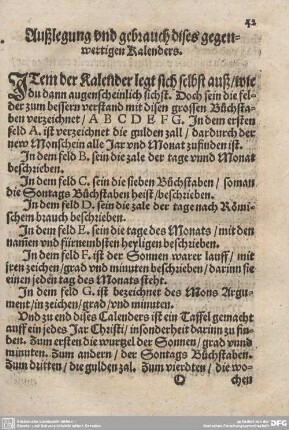 42
Außlegung vnd gebrauch dises gegen-
wertigen Kalenders.
ITem der Kalender legt sich selbst auß/wie
du dann augenscheinlich sichst. Doch sein die fel-
der zum bessern verstand mit disen grossen Büchsta-
ben verzeichnet/ A B C D E F G. In dem ersten
feld A. ist verzeichnet die gulden zall/ dardurch der
new Monschein alle Jar vnd Monat zufinden ist.
In dem feld B. sein die zale der tage vnnd Monat
beschrieben.
In dem feld C. sein die sieben Büchstaben/ so man
die Sontags Büchstaben heist/beschrieben.
In dem feld D. sein die zale der tage nach Römi-
schem brauch beschrieben.
In dem feld E. sein die tage des Monats/ mit den
namen vnd fürnembsten heyligen beschrieben.
In dem feld F. ist der Sonnen warer lauff/ mit
jren zeichen/grad vnd minuten beschrieben/darinn sie
einen jeden tag des Monats steht.
In dem feld G. ist bezeichnet des Mons Argu-
ment/in zeichen/grad/vnd minuten.
Vnd zu end dises Calenders ist ein Taffel gemacht
auff ein jedes Jar Christi/ insonderheit darinn zu fin-
den. Zum ersten die wurtzel der Sonnen/ grad vnnd
minuten. Zum andern/ der Sontags Büchstaben.
Zum dritten/ die gulden zal. Zum vierdten/ die wo-
O chen